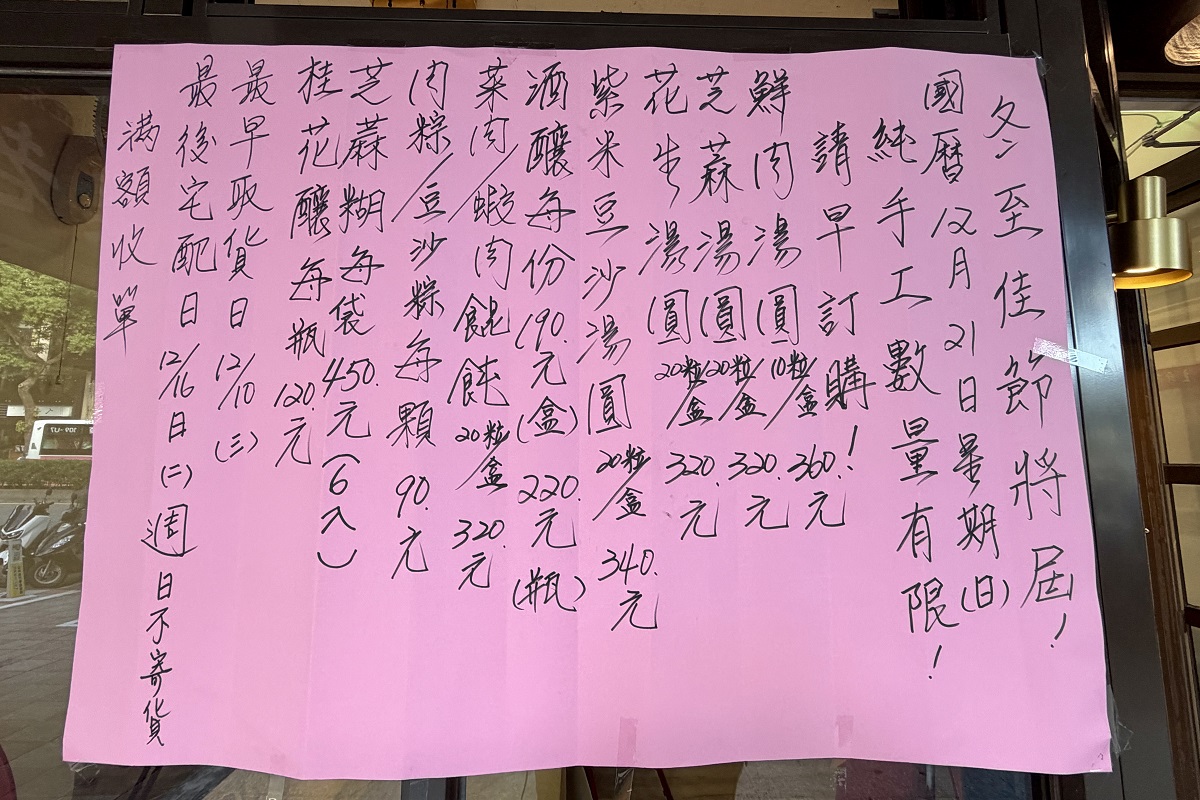 冬至佳節將屆！
國曆12月21日星期(日)
純手工數量有限！
請早訂購！
鮮肉湯圓10粒/盒360.元
芝蔴湯圓20粒/盒320.元
花生湯圓20粒/盒320.元
紫米豆沙湯圓20粒/盒340.元
酒釀每份190.元(盒)220.元(瓶)
菜肉/蝦肉餛飩20粒/盒320.元
肉粽/豆沙粽每顆90.元
芝蔴糊每袋450.元(6入)
桂花釀每瓶120.元
最早取貨日12/10(三)
最後宅配日12/16日(二)週日不寄貨
滿額收單